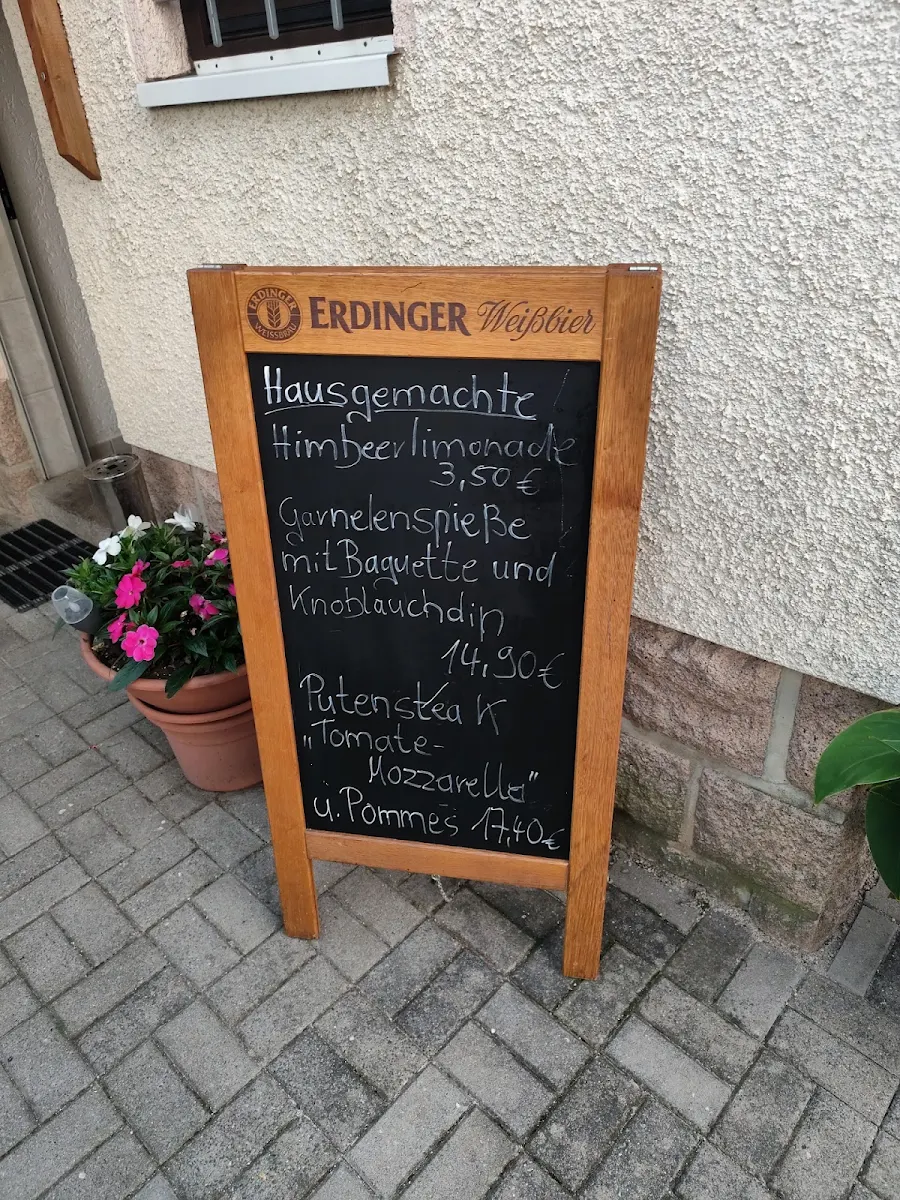 ERDINGER
WEISSBRÄU
ERDINGER Weißbier
Hausgemachte
Himbeerlimonade
3,50 €
Garnelenspieße
mit Baguette und
Knoblauchdip
14,90 €
Putensteak
"Tomate-
Mozzarella"
u. Pommes 17,40 €